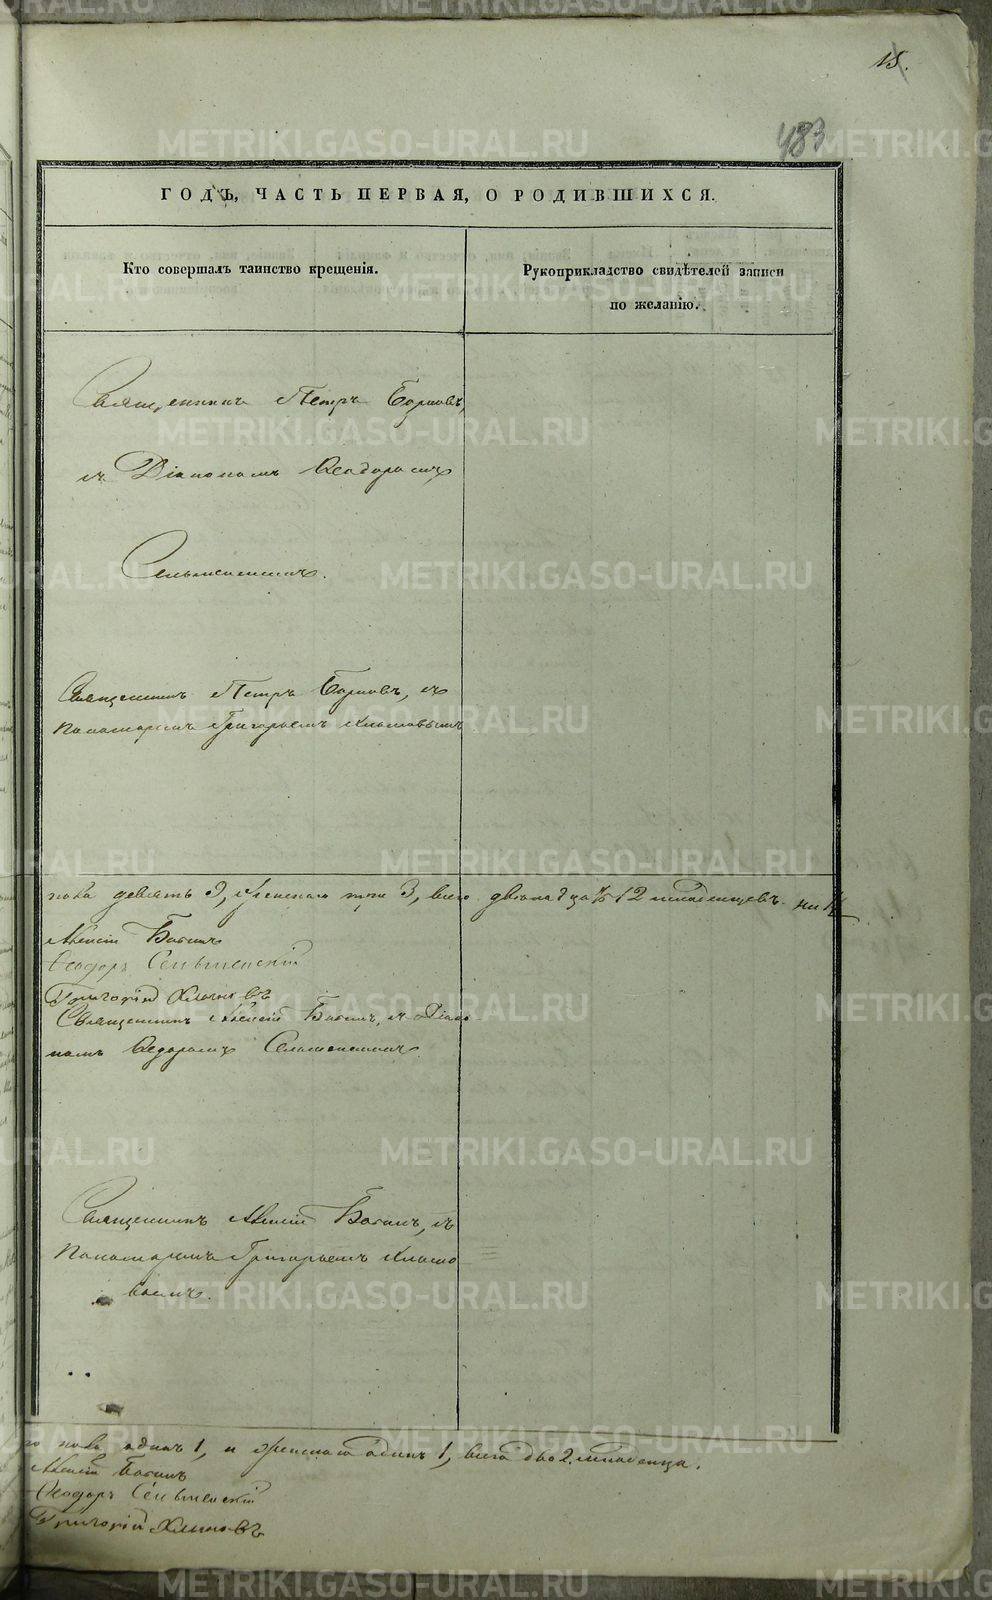 15.
483
ГОДЪ, ЧАСТЬ ПЕРВАЯ, О РОДИВШИХСЯ.
Кто совершалъ таинство крещенія.
Рукоприкладство свидѣтелей записи
по желанію.
Священникъ Петръ
съ Діакономъ Ѳеодоромъ
Сельменскимъ.
Священникъ Петръ съ
Пономаремъ Григорьемъ Хлыновымъ
пола девять 9, женскаго три 3, всего двенадцать 12 младенцевъ.
Алексій Бабинъ
Ѳеодоръ Сельменскій
Григорій Хлыновъ
Священникъ Алексій Бабинъ, съ Діако-
номъ Ѳедоромъ Сельменскимъ
Священникъ Алексій Бабинъ, съ
Пономаремъ Григорьемъ Хлыно-
вымъ.
пола одинъ 1, и женскаго одинъ 1, всего два 2 младенца.
Алексій Бабинъ
Ѳеодоръ Сельменскій
Григорій Хлыновъ
METRIKI.GASO-URAL.RU